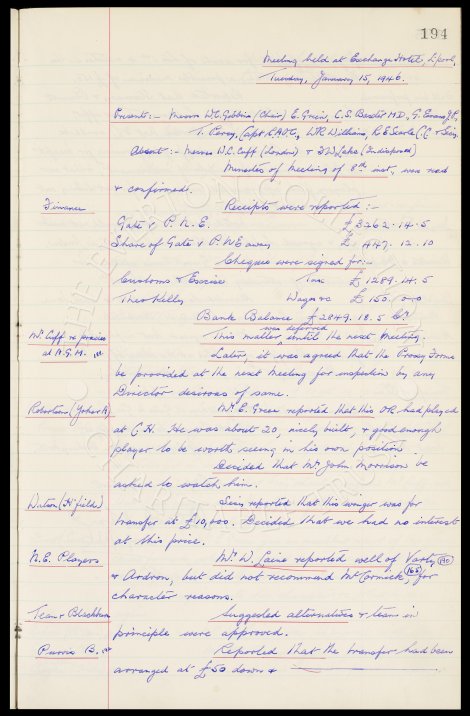 194
Meeting held at Exchange Hotel, L'pool,
Tuesday, January 15, 1946.
Present:- Messrs W.C. Gibbins (Chair) E. Green, C.S. Baxter M.D., G. Evans J.P.,
T. Percy, Capt. W.R. Williams, R.E. Searle & Secy.
Absent:- Messrs W.C. Cuff (London) & (Indisposed)
Minutes of Meeting of 8th inst. was read
& confirmed.
Finance
Receipts were reported:-
Gate v P.N.E. £3262.14.5
Share of Gate v P.N.E away £ 447.12.10
Cheques were signed for:-
Customs & Excise Tax £ 1289.14.5
Theo Kelly Wages £ 150.0.0
Bank Balance £2849.18.5 Cr
Mr Cuff re proxies
at A.G.M.
This matter was deferred until the next Meeting.
Later, it was agreed that the Proxy Forms
be provided at the next Meeting for inspection by any
Director desirous of same.
Robertson
Mr. E. Green reported that this O.R. had played
at C.H. He was about 20, nicely built, & good enough
player to be worth seeing in his own position.
Decided that Mr John Morrison be
asked to watch him.
(H'field)
Secy. reported that this winger was for
transfer at £10,000. Decided that we had no interest
at this price.
N.E. Players
Mr. W. Laine reported well of Varty
& Ardron, but did not recommend McCormick for
character reasons.
Team v Blackburn
Suggested alternatives & team in
principle were approved.
Purvis B.
Reported that the transfer had been
arranged at £50 down &